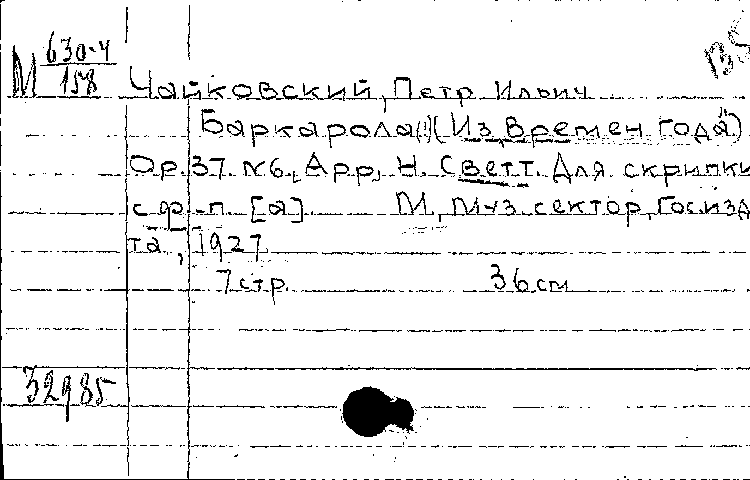 М 630-4/158
Чайковский, Петр Ильич
Баркарола (Из "Времен года")
Op. 37. №6, Арр, Н. Светт. Для скрипки
с ф-п. [а]. М, Муз. сектор, Гос.изд
та, 1927
7 стр. 36 см
32985